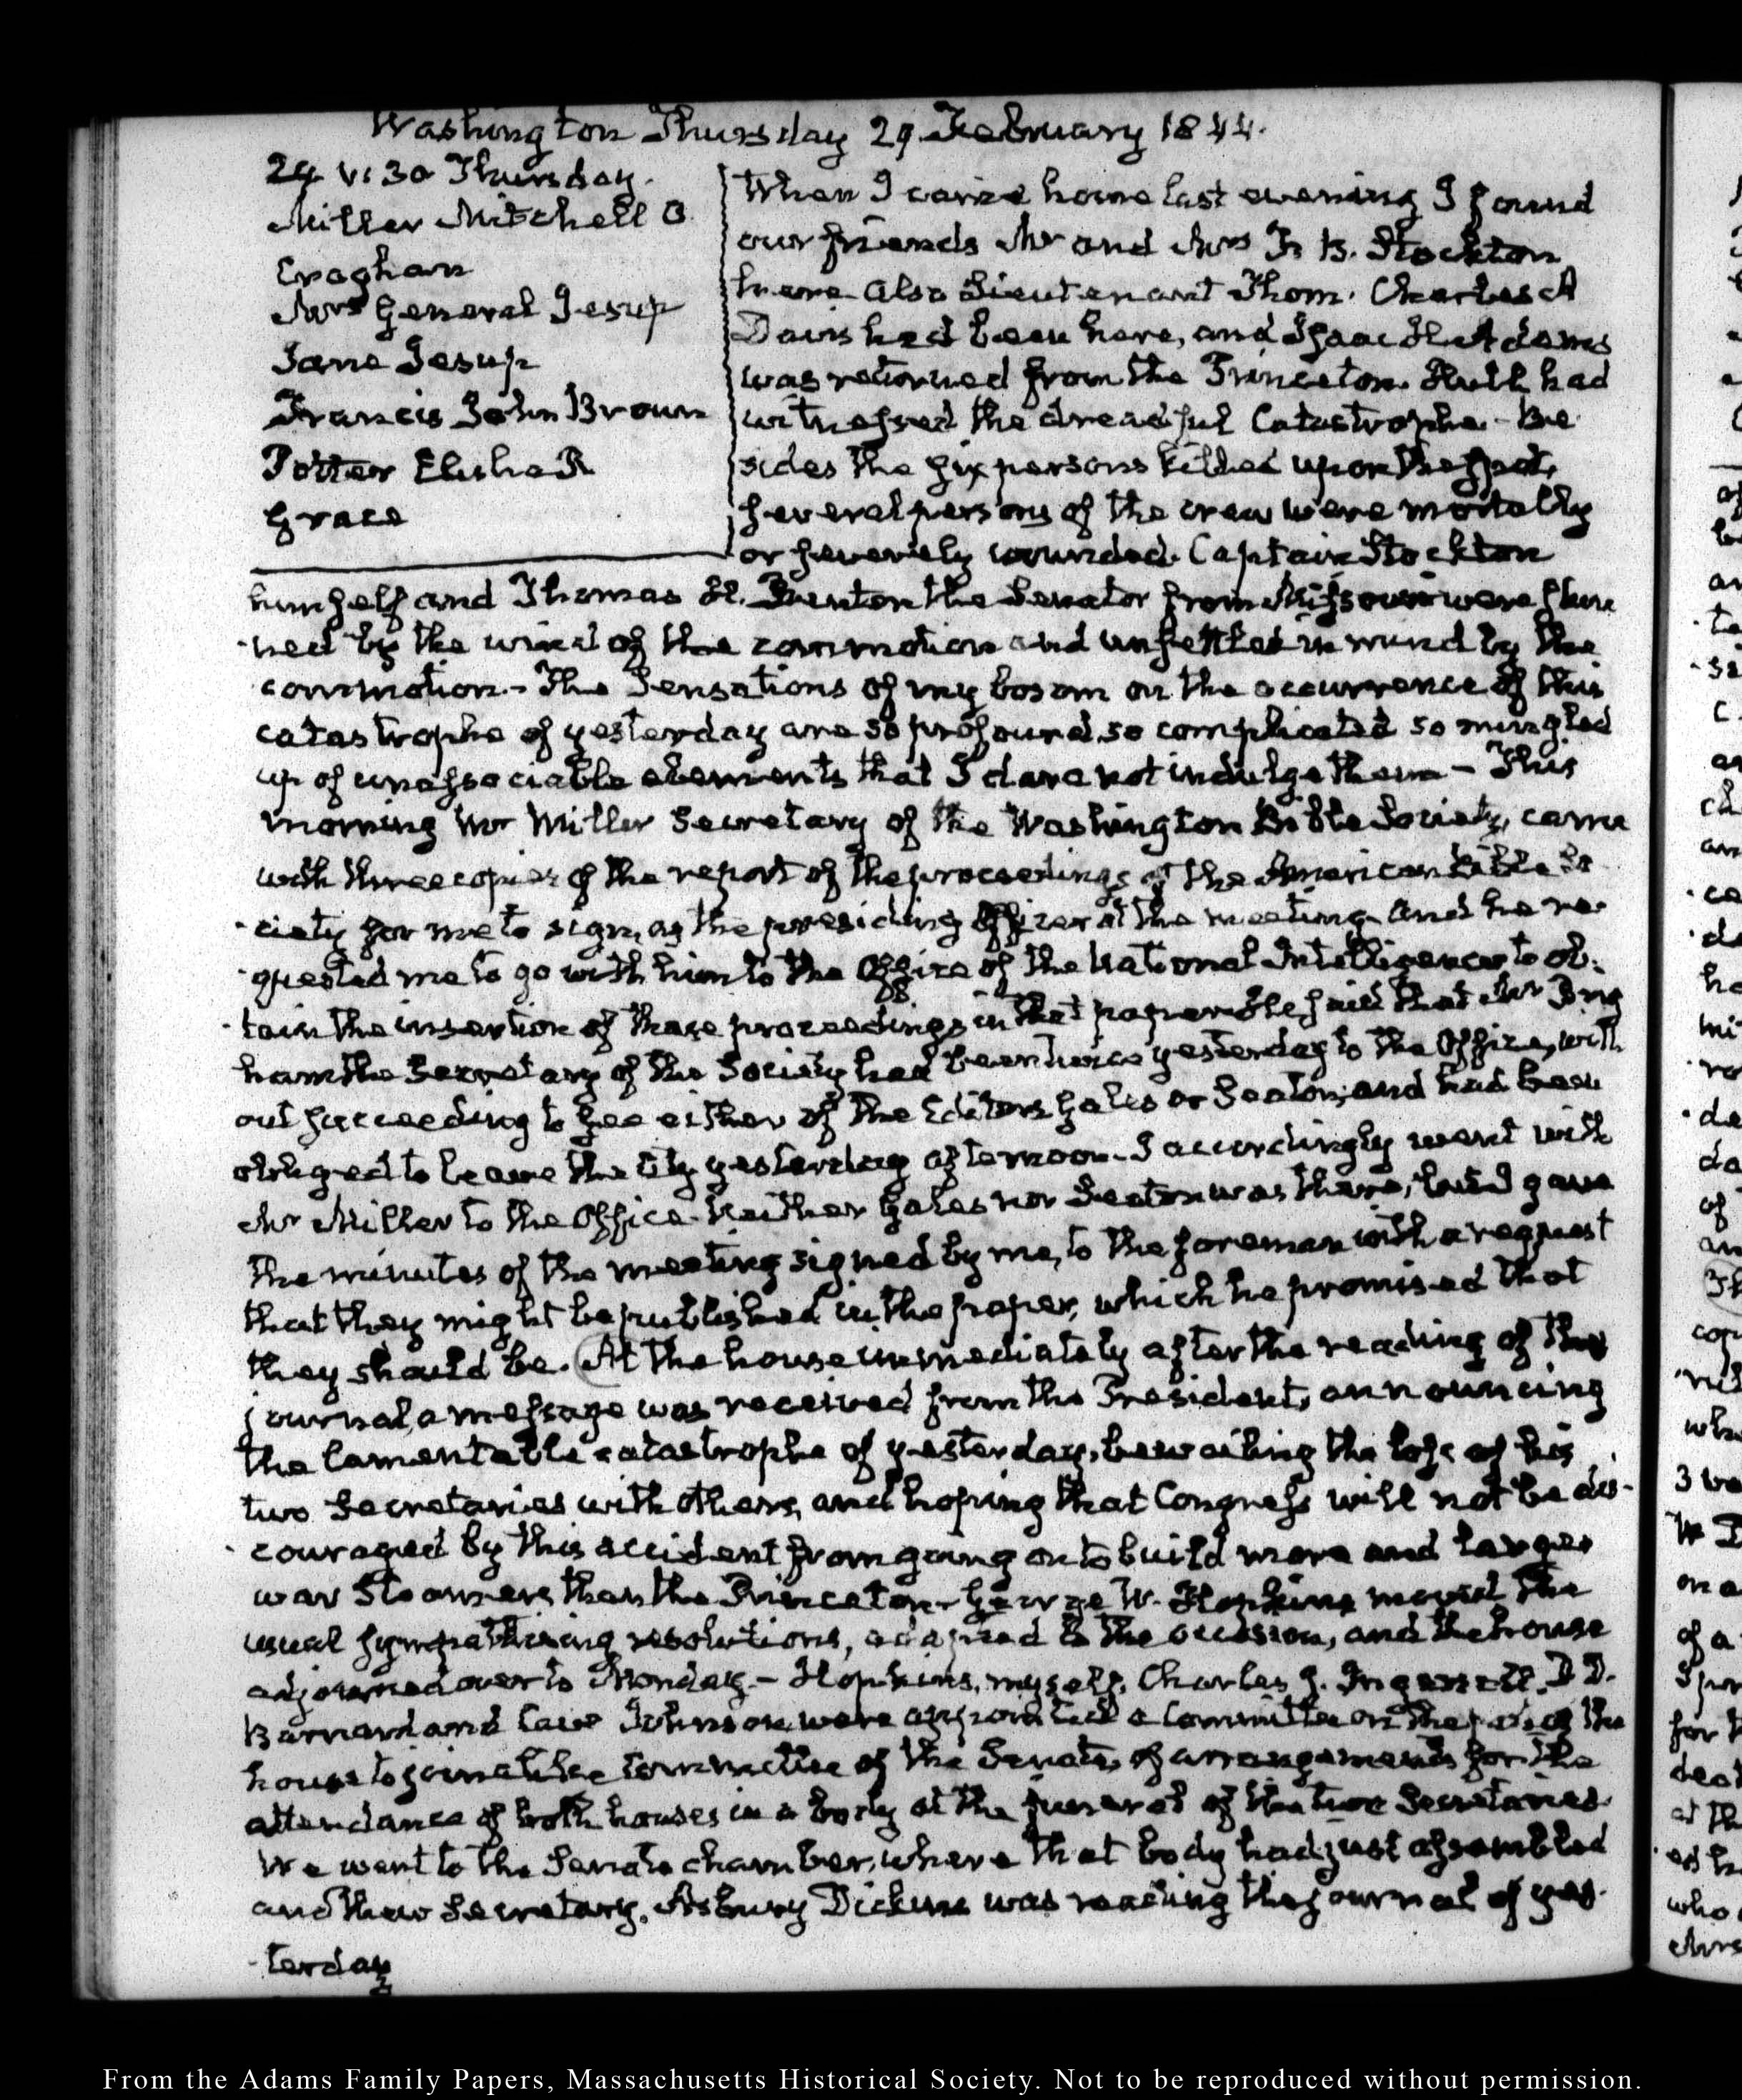 Washington Thursday 29 February 1844.
29. V:30 Thursday.
Miller Mitchell O
Croghan
Mrs General Jesup
Jane Jesup
Francis John Brown
Potter Elisha R
Grace
When I came home last evening I found
our friends Mr and Mrs F. B. Stockton
here also Lieutenant Thom. Charles A
Davis had been here, and Isaac Hull Adams
was returned from the Princeton. Hull had
witnessed the dreadful Catastrophe – Be
sides the six persons killed upon the spot,
several persons of the crew were mortally
or severely wounded. Captain Stockton
himself and Thomas H. Benton the Senator from Missouri were stun
-ned by the wind of the commotion and unsettled in mind by the
commotion – The Sensations of my bosom on the occurrence of this
catastrophe of yesterday are so profound, so complicated so mingled
up of unassociable elements that I dare not indulge them – This
morning Mr Miller Secretary of the Washington Bible Society, came
with three copies of the report of the proceedings of the American Bible So
-ciety for me to sign, as the presiding Officer at the meeting and he re-
-quested me to go with him to the Office of the National Intelligencer to ob-
-tain the insertion of these proceedings in that paper. He said that Mr Brig
ham the Secretary of the Society had been twice yesterday to the Office, with
out succeeding to see either of the Editors Gales or Seaton; and had been
obliged to leave the City yesterday afternoon – I accordingly went with
Mr Miller to the Office. Neither Gales nor Seaton was there, but I gave
the minutes of the meeting signed by me, to the foreman with a request
that they might be published in the paper, which he promised that
they should be. (At the house immediately after the reading of the
journal, a message was received from the President, announcing
the lamentable catastrophe of yesterday, bewailing the loss of his
two Secretaries with others, and hoping that Congress will not be dis-
-couraged by this accident from going on to build more and larger
war Steamers than the Princeton – George W. Hopkins moved the
usual sympathising resolutions, adapted to the occasion, and the house
adjourned over to Monday. – Hopkins, myself, Charles J. Ingersoll, D D.
Barnard and Cave Johnson were appointed a Committee on the part of the
house to join a like Committee of the Senate, of arrangements for the
attendance of both houses in a body at the funeral of the two Secretaries.
We went to the Senate chamber, where that body had just assembled
and their Secretary, Asbury Dickins was reading the journal of yes-
-terday
From the Adams Family Papers, Massachusetts Historical Society. Not to be reproduced without permission.